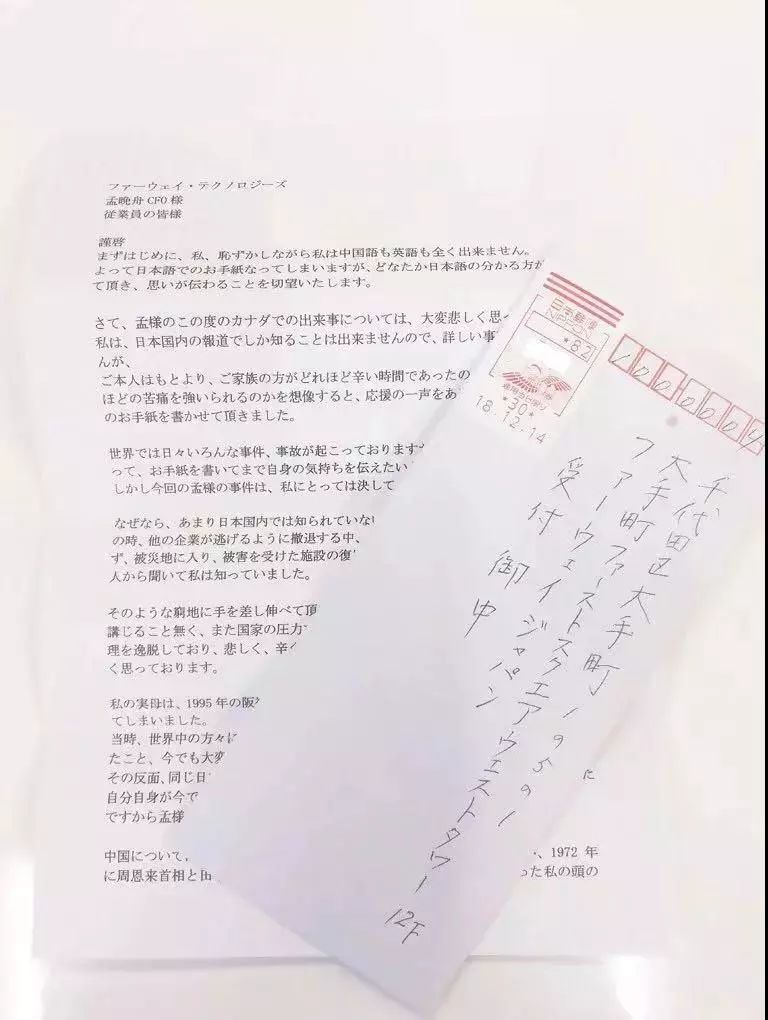 ファーウェイ・テクノロジーズ
孟晩舟 CFO 様
従業員の皆様
謹啓
まずはじめに、私、恥ずかしながら私は中国語も英語も全く出来ません。
よって日本語でのお手紙なってしまいますが、どなたか日本語の分かる方が
て頂き、思いが伝わることを切望いたします。
さて、孟様のこの度のカナダでの出来事については、大変悲しく思
私は、日本国内の報道でしか知ることは出来ませんので、詳しい事
んが、
ご本人はもとより、ご家族の方がどれほど辛い時間であったの
ほどの苦痛を強いられるのかを想像すると、応援の一声をあ
のお手紙を書かせて頂きました。
世界では日々いろんな事件、事故が起こっております
って、お手紙を書いてまで自身の気持ちを伝えたい
しかし今回の孟様の事件は、私にとっては決して
なぜなら、あまり日本国内では知られていない
の時、他の企業が逃げるように撤退する中、
ず、被災地に入り、被害を受けた施設の復
人から聞いて私は知っていました。
そのような窮地に手を差し伸べて頂
講じること無く、また国家の圧力
理を逸脱しており、悲しく、辛
く思っております。
私の実母は、1995 年の阪
てしまいました。
当時、世界中の方々に
たこと、今でも大変
その反面、同じ日
自分自身が今で
ですから孟様
中国について、
、1972 年
に周恩来首相と田
った私の頭の
日本郵便
NIPPON
*82
*30*
18.12.14
1000004
千代田区大手町1の5の1
大手町ファーストスクエアウエストタワー12F
ファーウェイジャパン
受付 御中